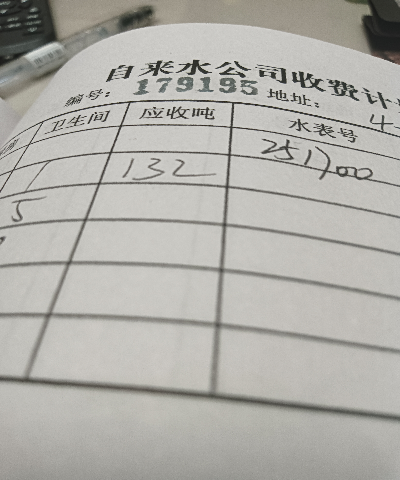 自来水公司收费计
编号：179195 地址：4
卫生间 应收吨 水表号
251700
1 132
5